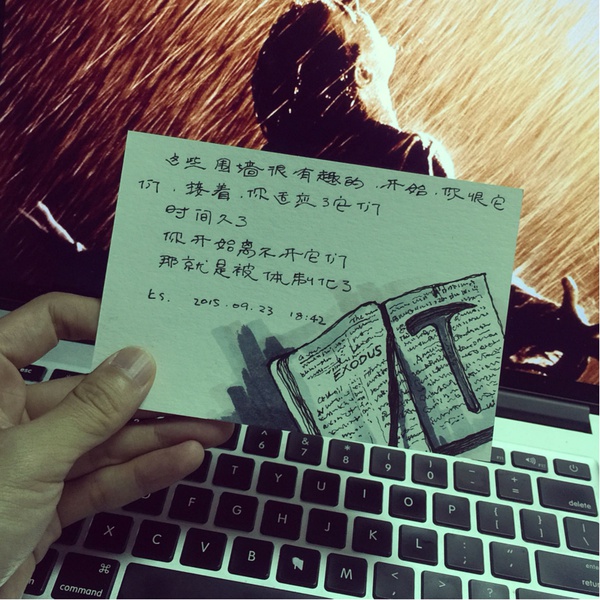 这些围墙很有趣的.开始.你恨它
们.接着.你适应了它们
时间久了
你开始离不开它们
那就是被体制化了
ts. 2015.09.23 18:42
EXODUS
esc
^
6
&
7
*
8
(
9
)
0
_
-
+
=
delete
T
Y
U
I
O
P
{
[
}
]
|
\
F
G
H
J
K
L
:
;
"
'
enter
return
X
C
V
B
M
<
,
>
.
?
/
⌘
command